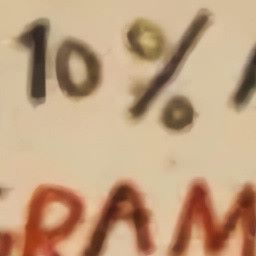 10%
RAM